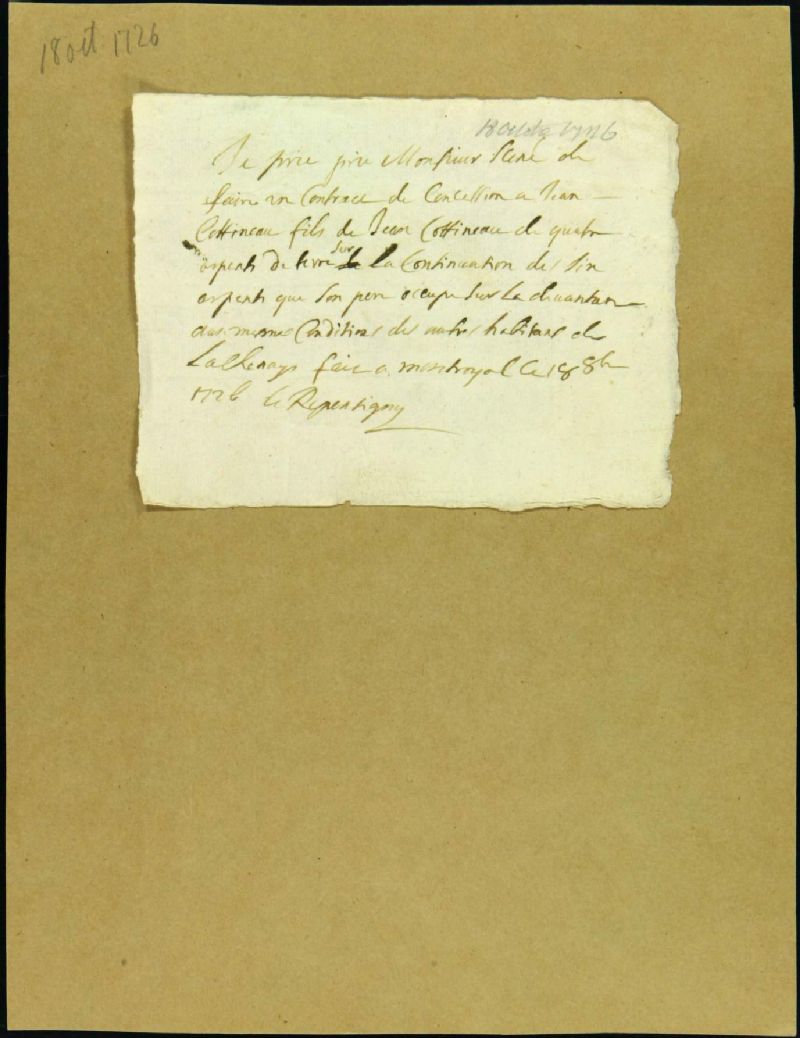 18 oct 1726
18 octobre 1726
Je prie prie Monsieur Senet de
faire un Contract de Concession a Jean
Cottineau fils de Jean Cottineau de quatre
arpents de terre sur la Continuation des six
arpents que son pere occupe sur la
aux mesmes Conditions des autres habitans de
Lachenays fait a montroyal le 18 8bre
1726 Le Repentigny